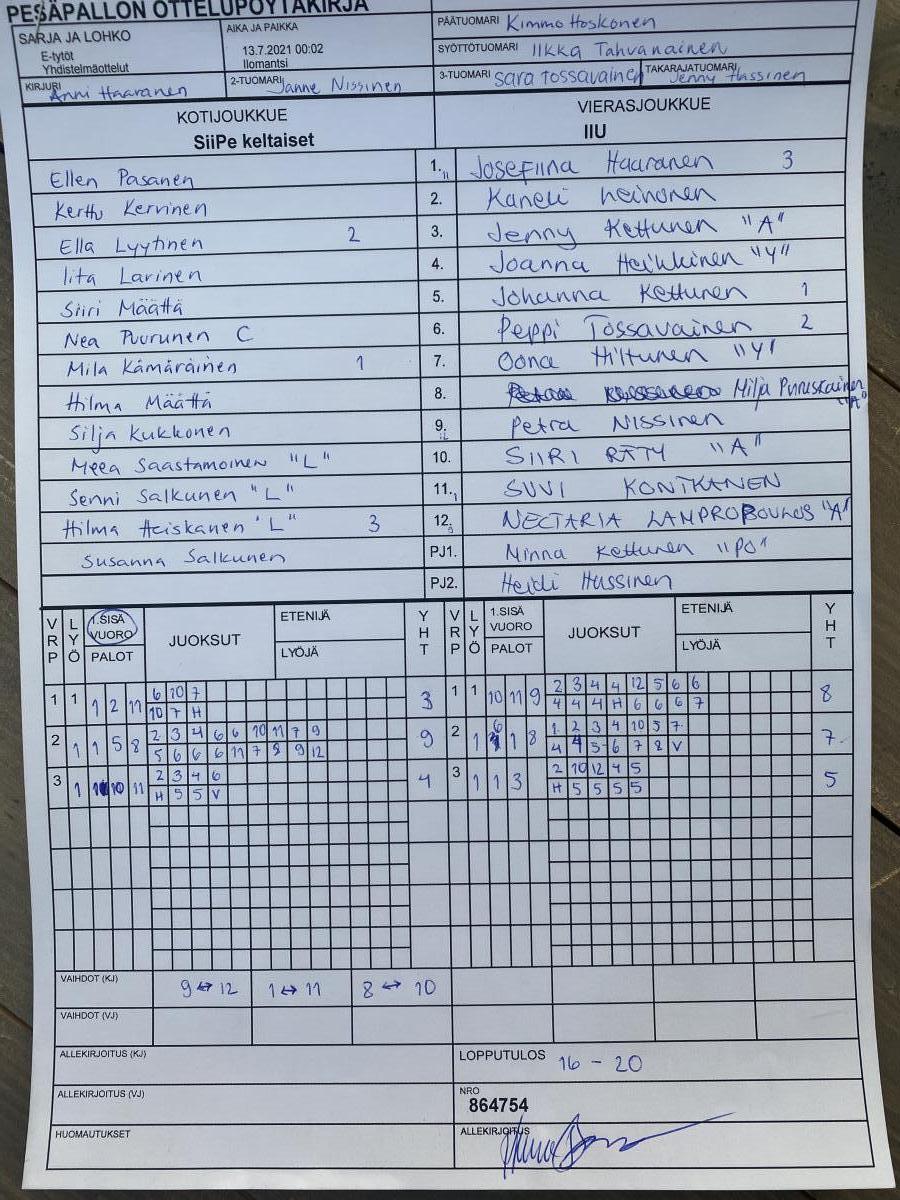 PESÄPALLON OTTELUPÖYTÄKIRJA
SARJA JA LOHKO
E-tytöt
Yhdistelmäottelut
AIKA JA PAIKKA
13.7.2021 00:02
Ilomantsi
PÄÄTUOMARI Kimmo Hoskonen
SYÖTTÖTUOMARI Ilkka Tahvanainen
KIRJURI Anni Haaranen
2-TUOMARI Janne Nissinen
3-TUOMARI Sara Tossavainen
TAKARAJATUOMARI Jenny Hassinen
KOTIJOUKKUE
SiiPe keltaiset
VIERASJOUKKUE
IIU
Ellen Pasanen 1. 11 Josefiina Haaranen 3
Kerttu Kervinen 2. Kaneli Heinonen
Ella Lyytinen 2 3. Jenny Kettunen "A"
Iita Larinen 4. Joanna Heikkinen "Y"
Siiri Määttä 5. Johanna Kettunen 1
Nea Puurunen C 6. Peppi Tossavainen 2
Mila Kämäräinen 1 7. Oona Hiltunen "Y"
Hilma Määttä 8. Milja Puruskainen "A"
Silja Kukkonen 9. 12 Petra Nissinen
Meea Saastamoinen "L" 10. SIIRI RÄTY "A"
Senni Salkunen "L" 11. 1 SUVI KONTKANEN
Hilma Heiskanen "L" 3 12. 9 NECTARIA LAMPROPOULOS "A"
Susanna Salkunen PJ1. Minna Kettunen "PO"
PJ2. Heidi Hassinen
VRP LYÖ 1.SISÄ VUORO PALOT JUOKSUT ETENIJÄ LYÖJÄ YHT VRP LYÖ 1.SISÄ VUORO PALOT JUOKSUT ETENIJÄ LYÖJÄ YHT
1 1 1 2 11 6 10 7 3 1 1 10 11 9 2 3 4 4 12 5 6 6 8
10 7 H 4 4 4 H 6 6 6 7
2 1 1 5 8 2 3 4 6 6 10 11 7 9 9 2 1 6 1 8 1 2 3 4 10 5 7 7
5 6 6 6 11 7 8 9 12 4 4 5 6 7 8 V
3 1 10 11 2 3 4 6 4 3 1 1 3 2 10 12 4 5 5
H 5 5 V H 5 5 5 5
VAIHDOT (KJ) 9↔12 1↔11 8↔10
VAIHDOT (VJ)
ALLEKIRJOITUS (KJ)
LOPPUTULOS 16 - 20
ALLEKIRJOITUS (VJ)
NRO
864754
HUOMAUTUKSET
ALLEKIRJOITUS